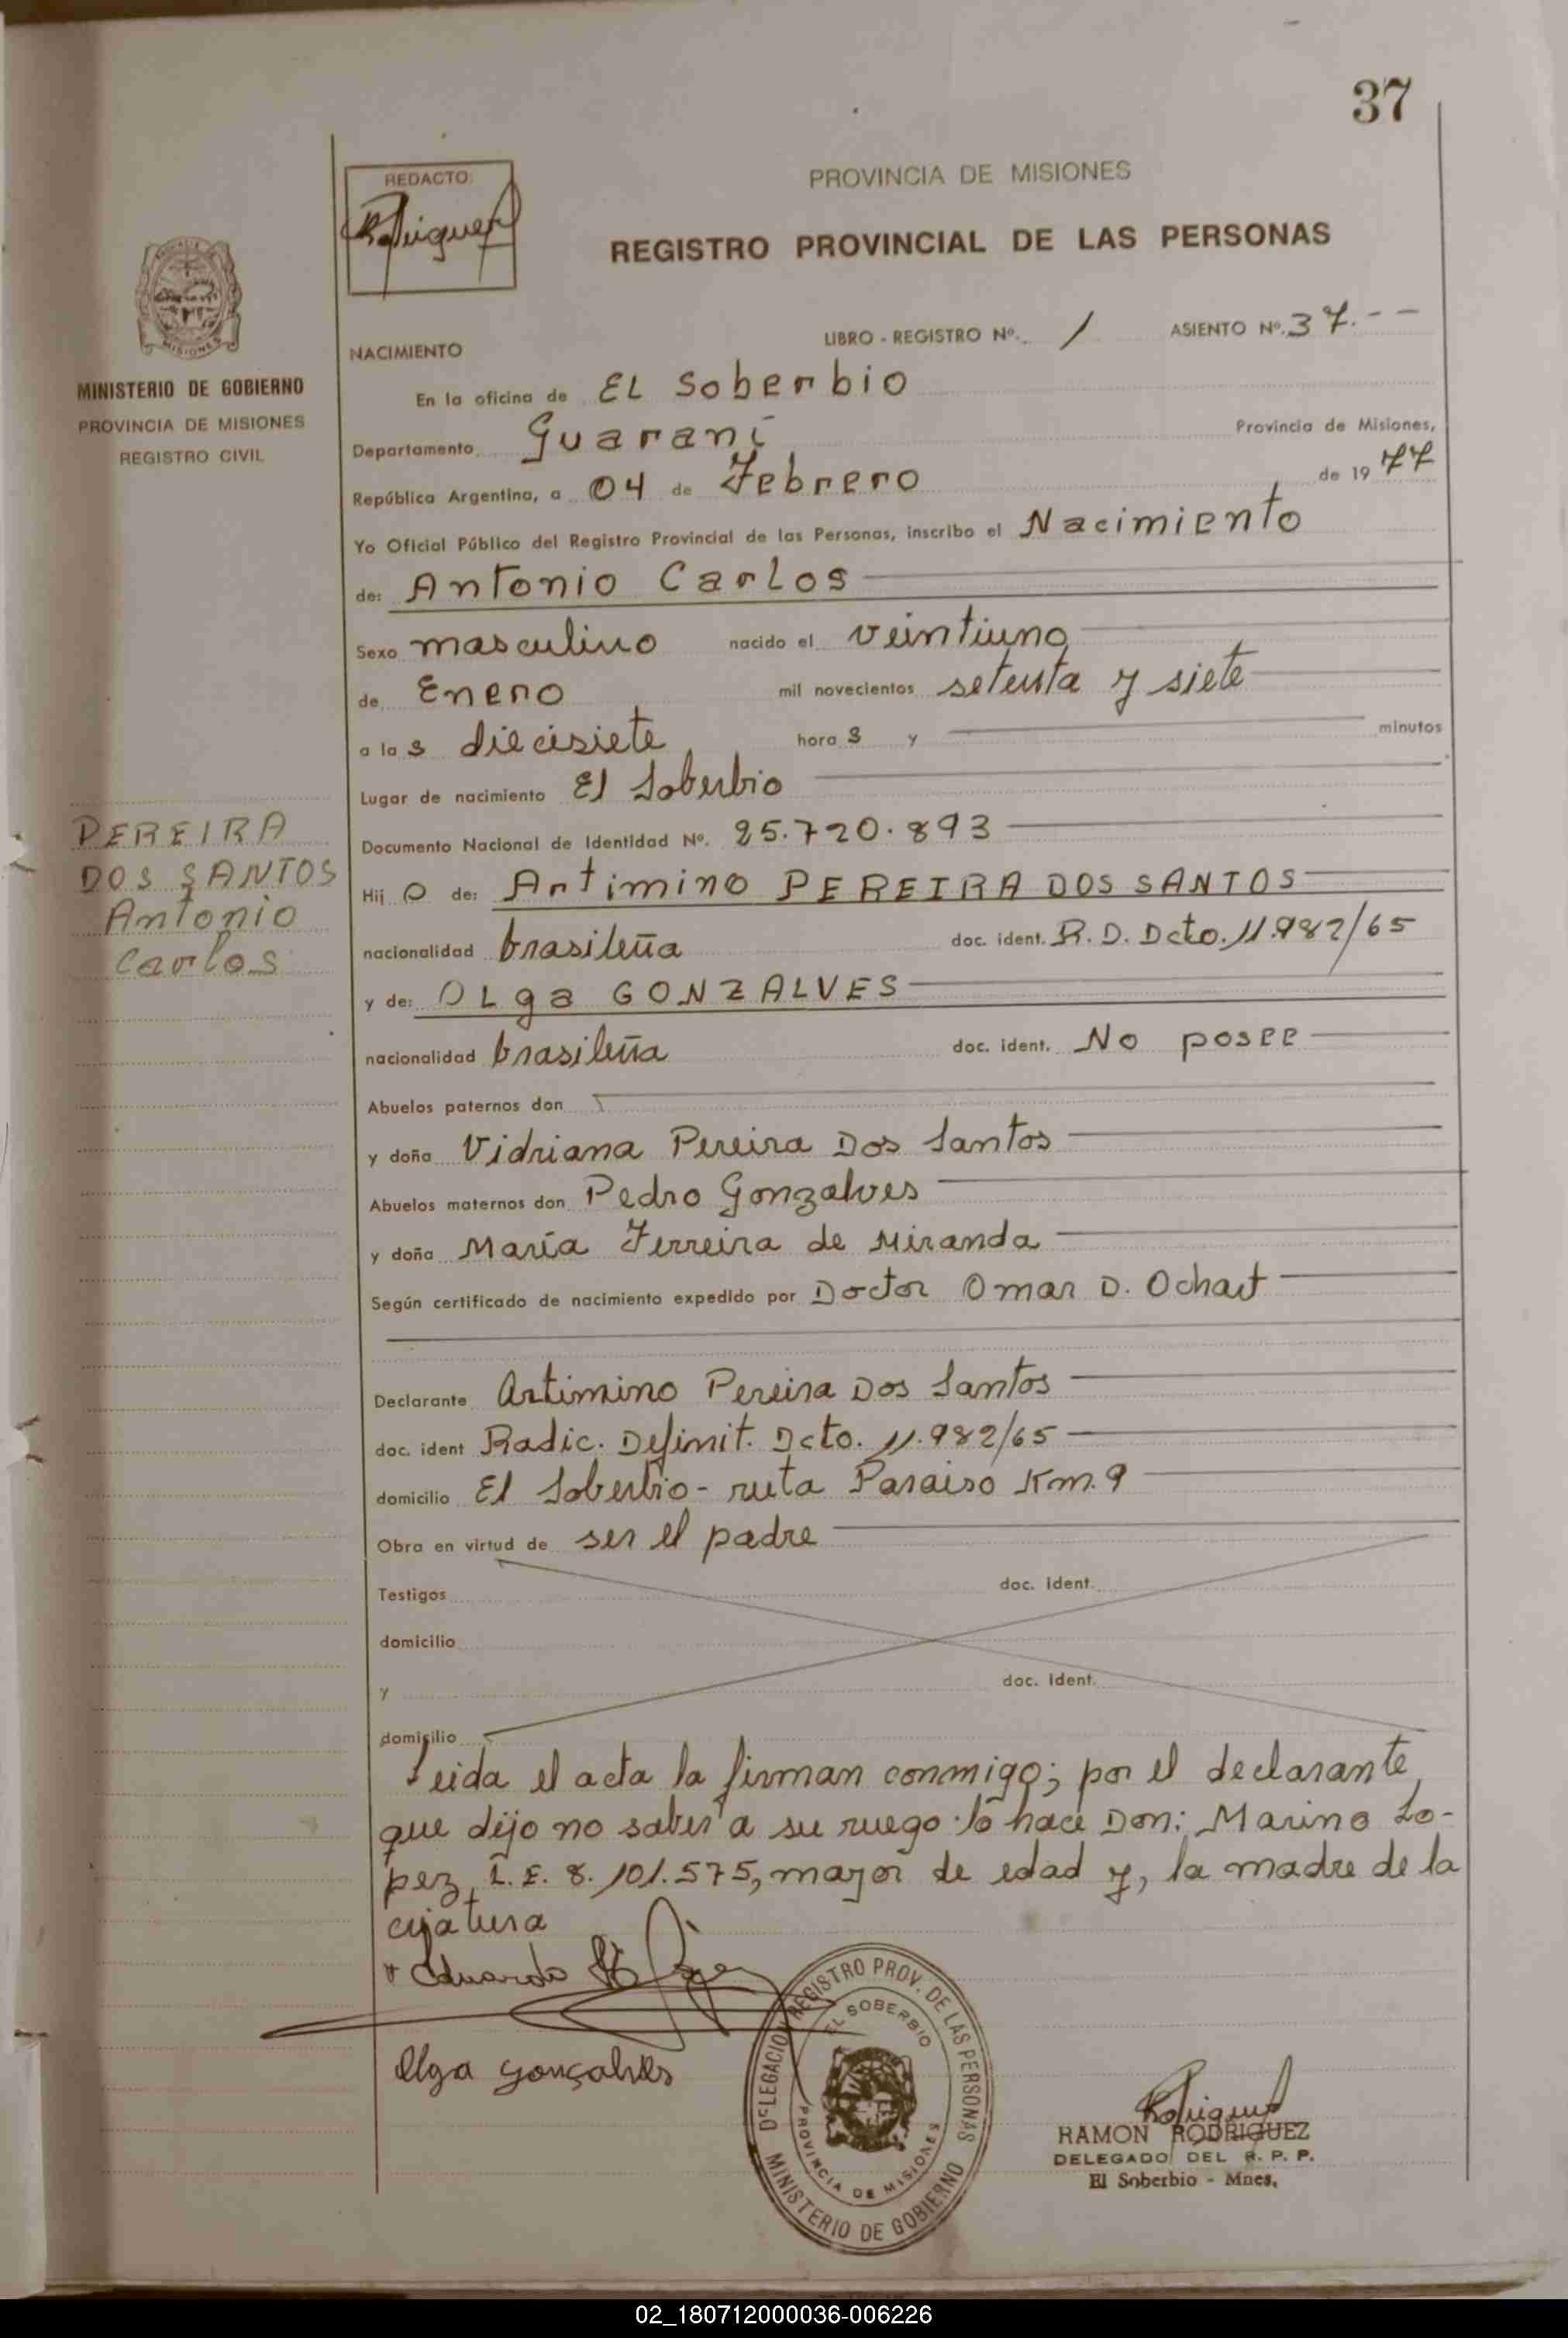 37
PROVINCIA DE MISIONES
REDACTO:
Rodriguez
REGISTRO PROVINCIAL DE LAS PERSONAS
MISIONES
MINISTERIO DE GOBIERNO
PROVINCIA DE MISIONES
REGISTRO CIVIL
LIBRO - REGISTRO Nº. 1 ASIENTO Nº. 37.--
NACIMIENTO
En la oficina de EL Soberbio
Departamento Guaraní Provincia de Misiones,
República Argentina, a 04 de Febrero de 1977
Yo Oficial Público del Registro Provincial de las Personas, inscribo el Nacimiento
de: Antonio Carlos
Sexo masculino nacido el veintiuno
de Enero mil novecientos setenta y siete
a las diecisiete horas y minutos
Lugar de nacimiento El Soberbio
Documento Nacional de Identidad Nº. 25.720.893
PEREIRA
DOS SANTOS
Antonio
Carlos
Hijo de: Artimino PEREIRA DOS SANTOS
nacionalidad brasileña doc. ident. R. D. Dcto. 11.982/65
y de: OLga GONZALVES
nacionalidad brasileña doc. ident. No posee
Abuelos paternos don
y doña Vidriana Pereira Dos Santos
Abuelos maternos don Pedro Gonzalves
y doña María Ferreira de Miranda
Según certificado de nacimiento expedido por Doctor Omar D. Ochart
Declarante Artimino Pereira Dos Santos
doc. ident Radic. Definit. Dcto. 11.982/65
domicilio El Soberbio - ruta Paraiso Km. 9
Obra en virtud de ser el padre
Testigos doc. ident.
domicilio
y doc. ident.
domicilio
Leida el acta la firman conmigo; por el declarante
que dijo no saber a su ruego lo hace Don: Marino Lo-
pez, L. E. 8.101.575, mayor de edad y, la madre de la
criatura
Eduardo
Olga Gonçalves
DELEGACION REGISTRO PROV. DE LAS PERSONAS
EL SOBERBIO
PROVINCIA DE MISIONES
MINISTERIO DE GOBIERNO
Rodriguez
RAMON RODRIGUEZ
DELEGADO DEL R. P. P.
El Soberbio - Mnes.
02_180712000036-006226